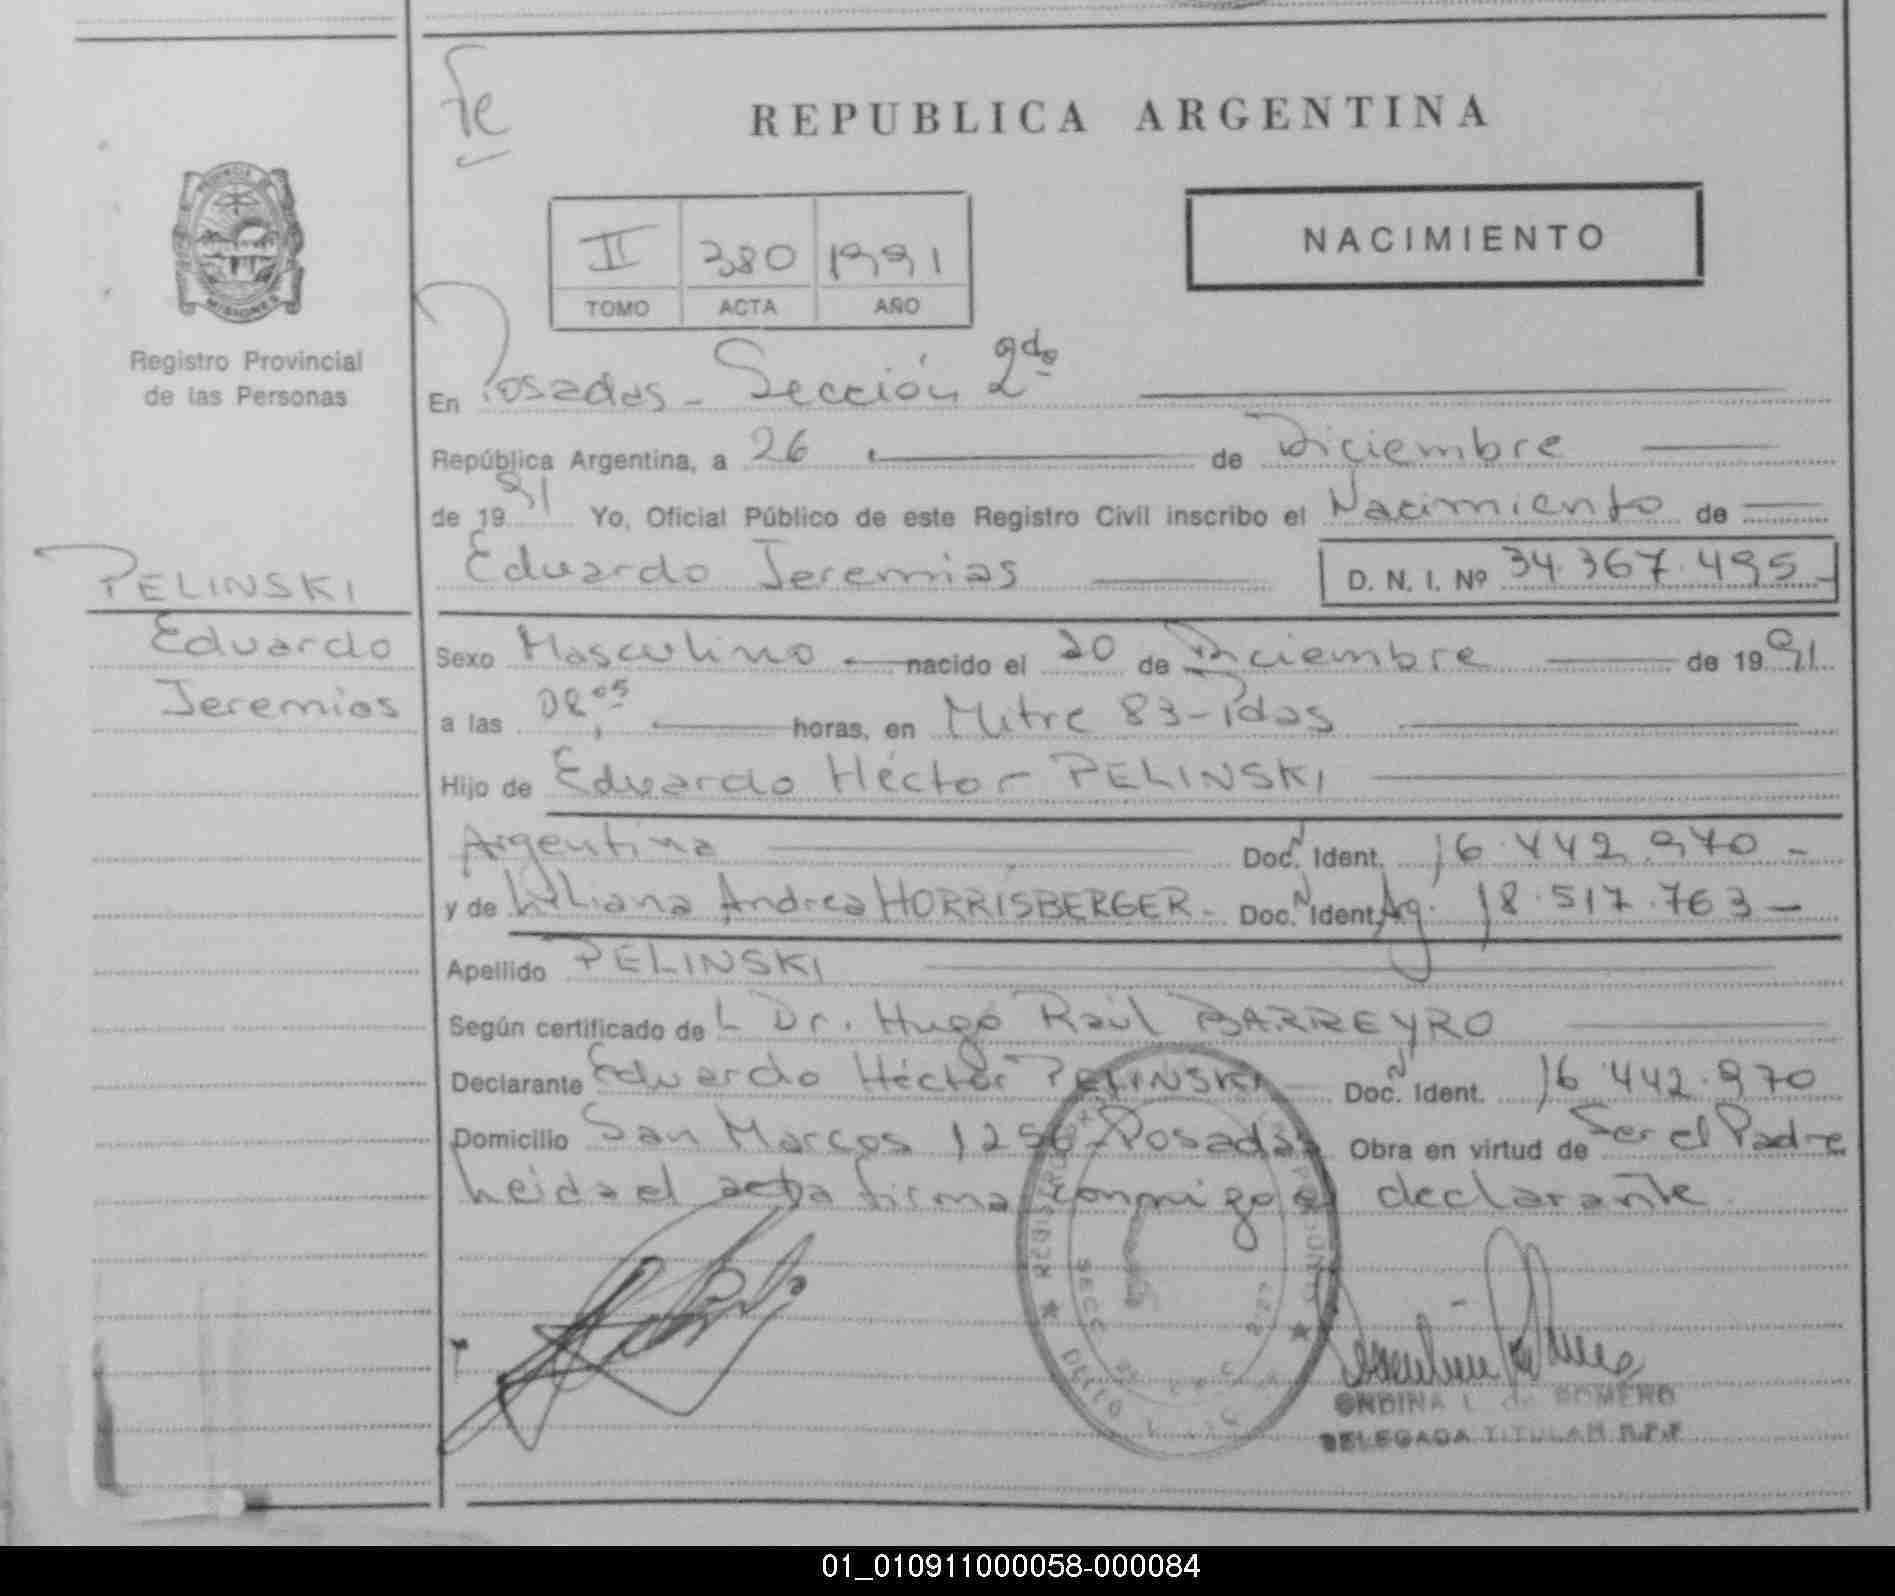 Fe
REPUBLICA ARGENTINA
II 380 1991
TOMO ACTA AÑO
NACIMIENTO
MISIONES
Registro Provincial
de las Personas
En Posadas - Sección 2da
República Argentina, a 26 de Diciembre
de 1991 Yo, Oficial Público de este Registro Civil inscribo el Nacimiento de
Eduardo Jeremias D. N. I. Nº 34.367.495
PELINSKI
Eduardo
Jeremias
Sexo Masculino nacido el 20 de Diciembre de 1991
a las 08,05 horas, en Mitre 83 - Pdas
Hijo de Eduardo Héctor PELINSKI
Argentina Doc. N Ident. 16.442.970 -
y de Liliana Andrea HORRISBERGER - Doc. N Ident. Arg. 18.517.763 -
Apellido PELINSKI
Según certificado de L Dr. Hugo Raúl BARREYRO
Declarante Eduardo Héctor PELINSKI Doc. N Ident. 16.442.970
Domicilio San Marcos 1256 - Posadas Obra en virtud de Ser el Padre
Leida el acta firma conmigo el declarante
ONDINA L. de ROMERO
DELEGADA TITULAR R.P.P
01_010911000058-000084